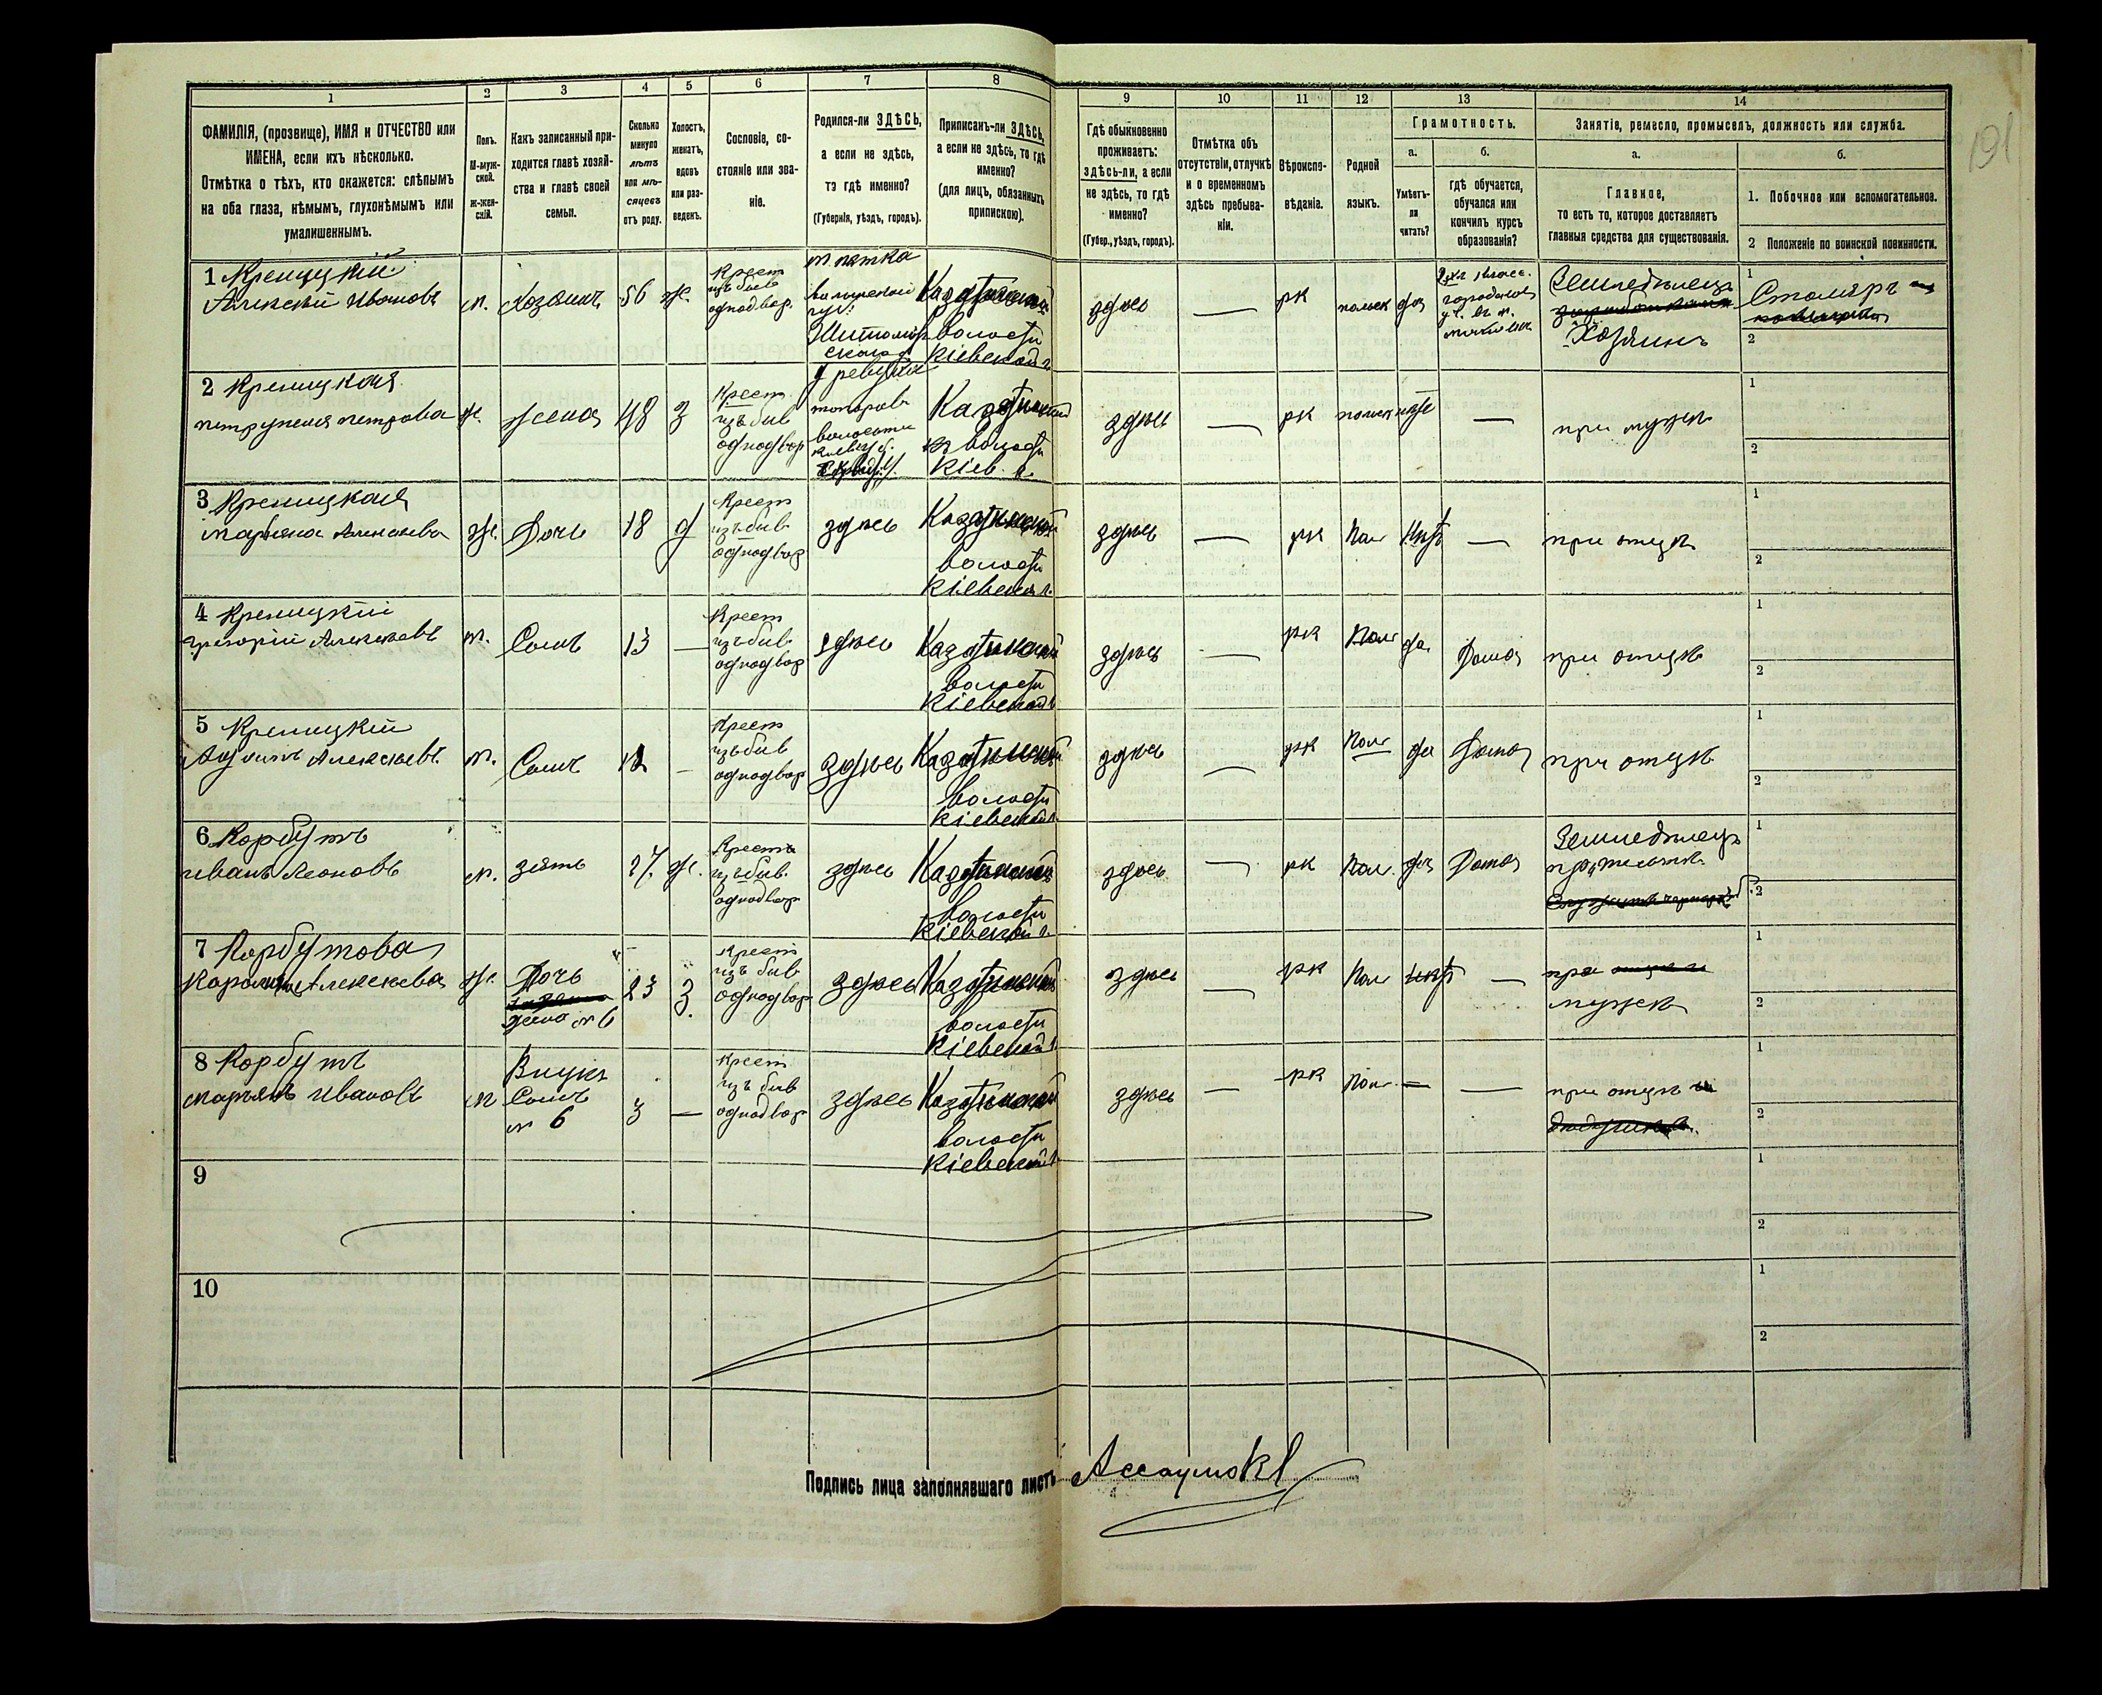 191
1
2
3
4
5
6
7
8
9
10
11
12
13
14
ФАМИЛІЯ, (прозвище), ИМЯ и ОТЧЕСТВО или
ИМЕНА, если ихъ нѣсколько.
Отмѣтка о тѣхъ, кто окажется: слѣпымъ
на оба глаза, нѣмымъ, глухонѣмымъ или
умалишеннымъ.
Полъ.
М-муж-
ской.
ж-жен-
скій.
Какъ записанный при-
ходится главѣ хозяй-
ства и главѣ своей
семьи.
Сколько
минуло
лѣтъ
или мѣ-
сяцевъ
отъ роду.
Холостъ,
женатъ,
вдовъ
или раз-
веденъ.
Сословіе, со-
стояніе или зва-
ніе.
Родился-ли ЗДѢСЬ,
а если не здѣсь,
то гдѣ именно?
(Губернія, уѣздъ, городъ).
Приписанъ-ли ЗДѢСЬ,
а если не здѣсь, то гдѣ
именно?
(для лицъ, обязанныхъ
припискою).
Гдѣ обыкновенно
проживаетъ:
здѣсь-ли, а если
не здѣсь, то гдѣ
именно?
(Губер., уѣздъ, городъ).
Отмѣтка объ
отсутствіи, отлучкѣ
и о временномъ
здѣсь пребыва-
ніи.
Вѣроиспо-
вѣданіе.
Родной
языкъ.
Грамотность.
а.
Умѣетъ-
ли
читать?
б.
гдѣ обучается,
обучался или
кончилъ курсъ
образованія?
Занятіе, ремесло, промыселъ, должность или служба.
а.
Главное,
то есть то, которое доставляетъ
главныя средства для существованія.
б.
1. Побочное или вспомогательное.
2 Положеніе по воинской повинности.
1 Креницкій
Алексѣй Ивановъ
м.
Хозяинъ
56
ж.
Крест
изъ бив
однодвор.
Казатинской
волости
Кіевской г.
здѣсь
—
рк
польск
да
Земледѣлецъ
Хозяинъ
1
Столяръ
2
2 Креницкая
петрунеля петрова
ж.
жена
48
з
Крест
изъ бив
однодвор
Казатинской
волости
Кіев. г.
здѣсь
—
рк
польск
нѣт
—
при мужѣ
1
2
3 Креницкая
марьяна Алексѣева
ж.
Дочь
18
д
Крест
изъ бив
однодвор
здѣсь
Казатинской
волости
Кіевской г.
здѣсь
—
рк
Пол
нѣт
—
при отцѣ
1
2
4 Креницкій
григорій Алексѣевъ
м.
Сынъ
13
—
Крест
изъ бив
однодвор
здѣсь
Казатинской
волости
Кіевской г.
здѣсь
—
рк
Пол
да
Дома
при отцѣ
1
2
5 Креницкій
Адольфъ Алексѣевъ
м.
Сынъ
—
Крест
изъ бив
однодвор
здѣсь
Казатинской
волости
Кіевской г.
здѣсь
—
рк
Пол
да
Дома
при отцѣ
1
2
6 Корбутъ
иванъ Леоновъ
м.
зять
27
ж.
Крест
изъ бив.
однодвор
здѣсь
Казатинской
волости
Кіевской г.
здѣсь
—
рк
Пол.
да
Дома
Земледѣлецъ
1
2
7 Корбутова
Каролина Алексѣева
ж.
Дочь
жена № 6
23
З.
Крест
изъ бив
однодвор
здѣсь
Казатинской
волости
Кіевской г.
здѣсь
—
рк
Пол
нѣт
—
при
мужѣ
1
2
8 Корбутъ
марьянъ Ивановъ
м
Внукъ
Сынъ
№ 6
3
—
Крест
изъ бив
однодвор
здѣсь
Казатинской
волости
Кіевской г.
здѣсь
—
рк
Пол.
—
—
при отцѣ
1
2
9
1
2
10
1
2
Подпись лица заполнявшаго листъ